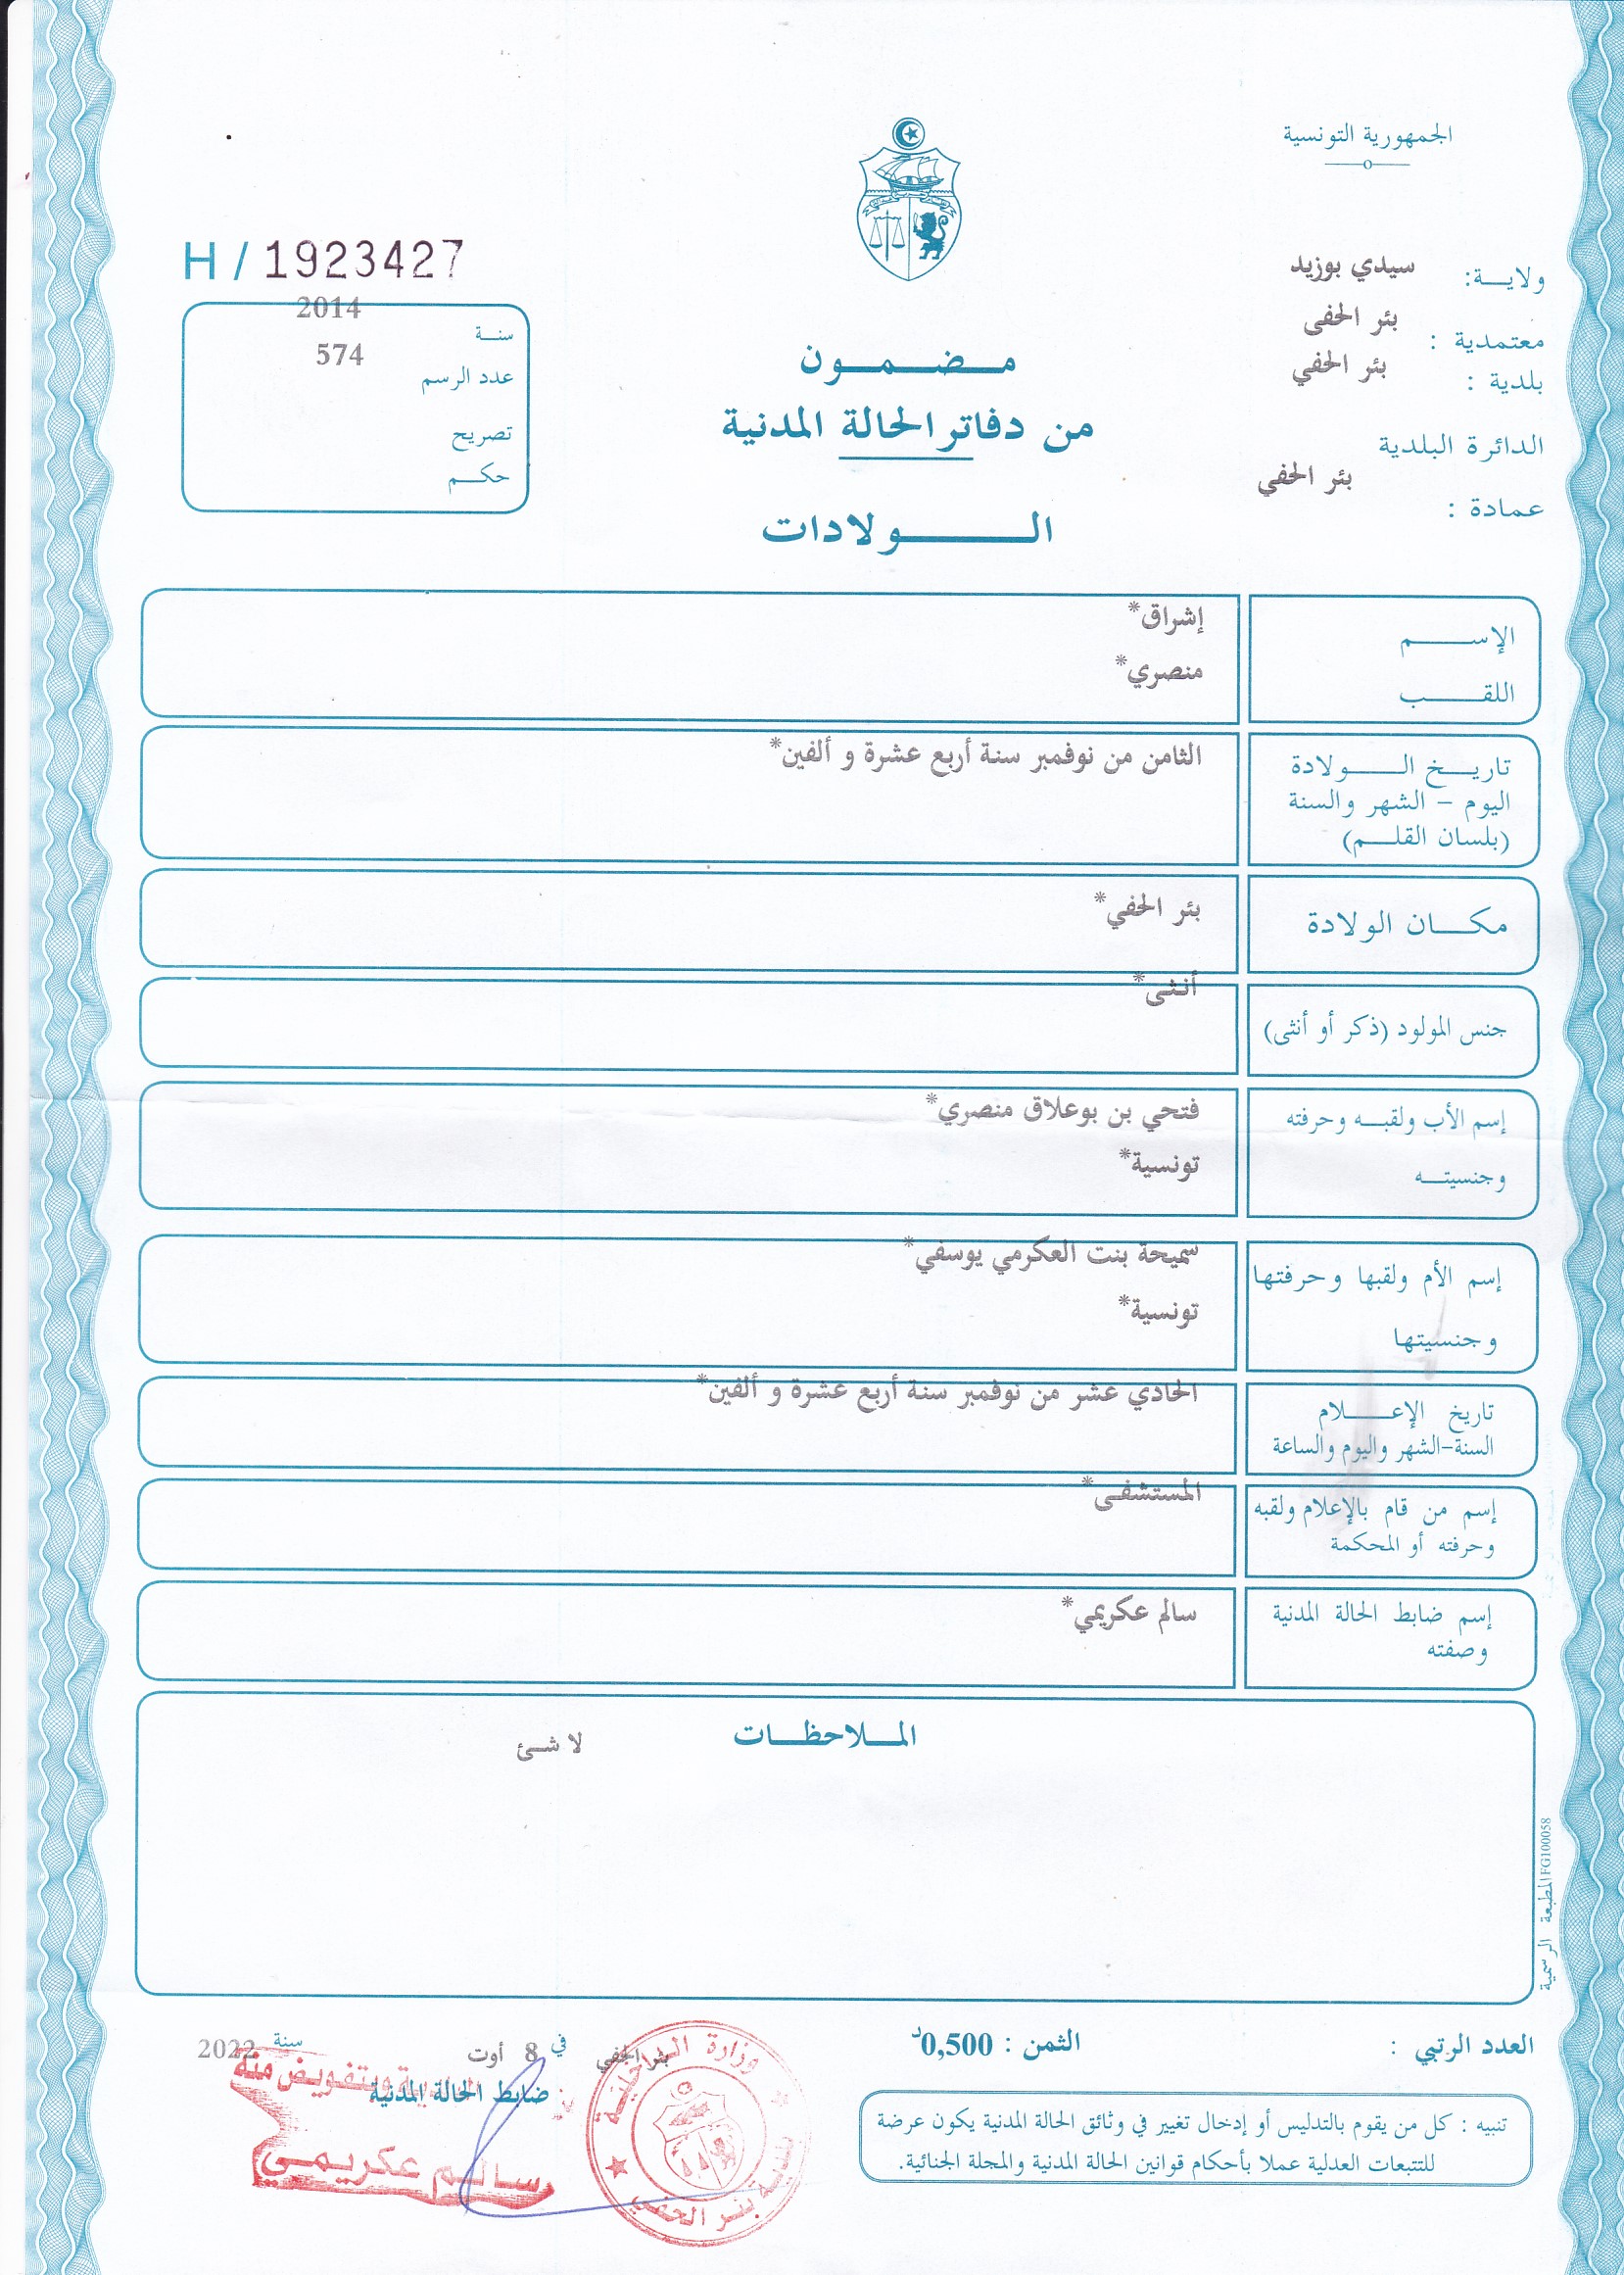 الجمهورية التونسية
ولايـــة: سيدي بوزيد
معتمدية : بئر الحفى
بلدية : بئر الحفي
الدائرة البلدية
عمادة : بئر الحفي
H / 1923427
سنــة 2014
عدد الرسم 574
تصريح
حكــم
مـضـمـون
من دفاتر الحالة المدنية
الـــولادات
الإســـم إشراق*
اللقـــب منصري*
تاريـخ الــولادة الثامن من نوفمبر سنة أربع عشرة و ألفين*
اليوم – الشهر والسنة
(بلسان القلــم)
مكــان الولادة بئر الحفي*
جنس المولود (ذكر أو أنثى) أنثى*
إسم الأب ولقبـه وحرفته فتحي بن بوعلاق منصري*
وجنسيتــه تونسية*
إسم الأم ولقبها وحرفتها سميحة بنت العكرمي يوسفي*
وجنسيتها تونسية*
تاريخ الإعـــلام الحادي عشر من نوفمبر سنة أربع عشرة و ألفين*
السنة-الشهر واليوم والساعة
إسم من قام بالإعلام ولقبه المستشفى*
وحرفته أو المحكمة
إسم ضابط الحالة المدنية سالم عكريمي*
وصفته
المـلاحظـات
لا شئ
المطبعة الرسمية FG100058
العدد الرتبي :
الثمن : 0,500د
بئر الحفي في 8 أوت سنة 2022
ضابط الحالة المدنية
وبتفويض منه
سالم عكريمي
وزارة الداخلية
بلدية بئر الحفي
تنبيه : كل من يقوم بالتدليس أو إدخال تغيير في وثائق الحالة المدنية يكون عرضة
للتتبعات العدلية عملا بأحكام قوانين الحالة المدنية والمجلة الجنائية.